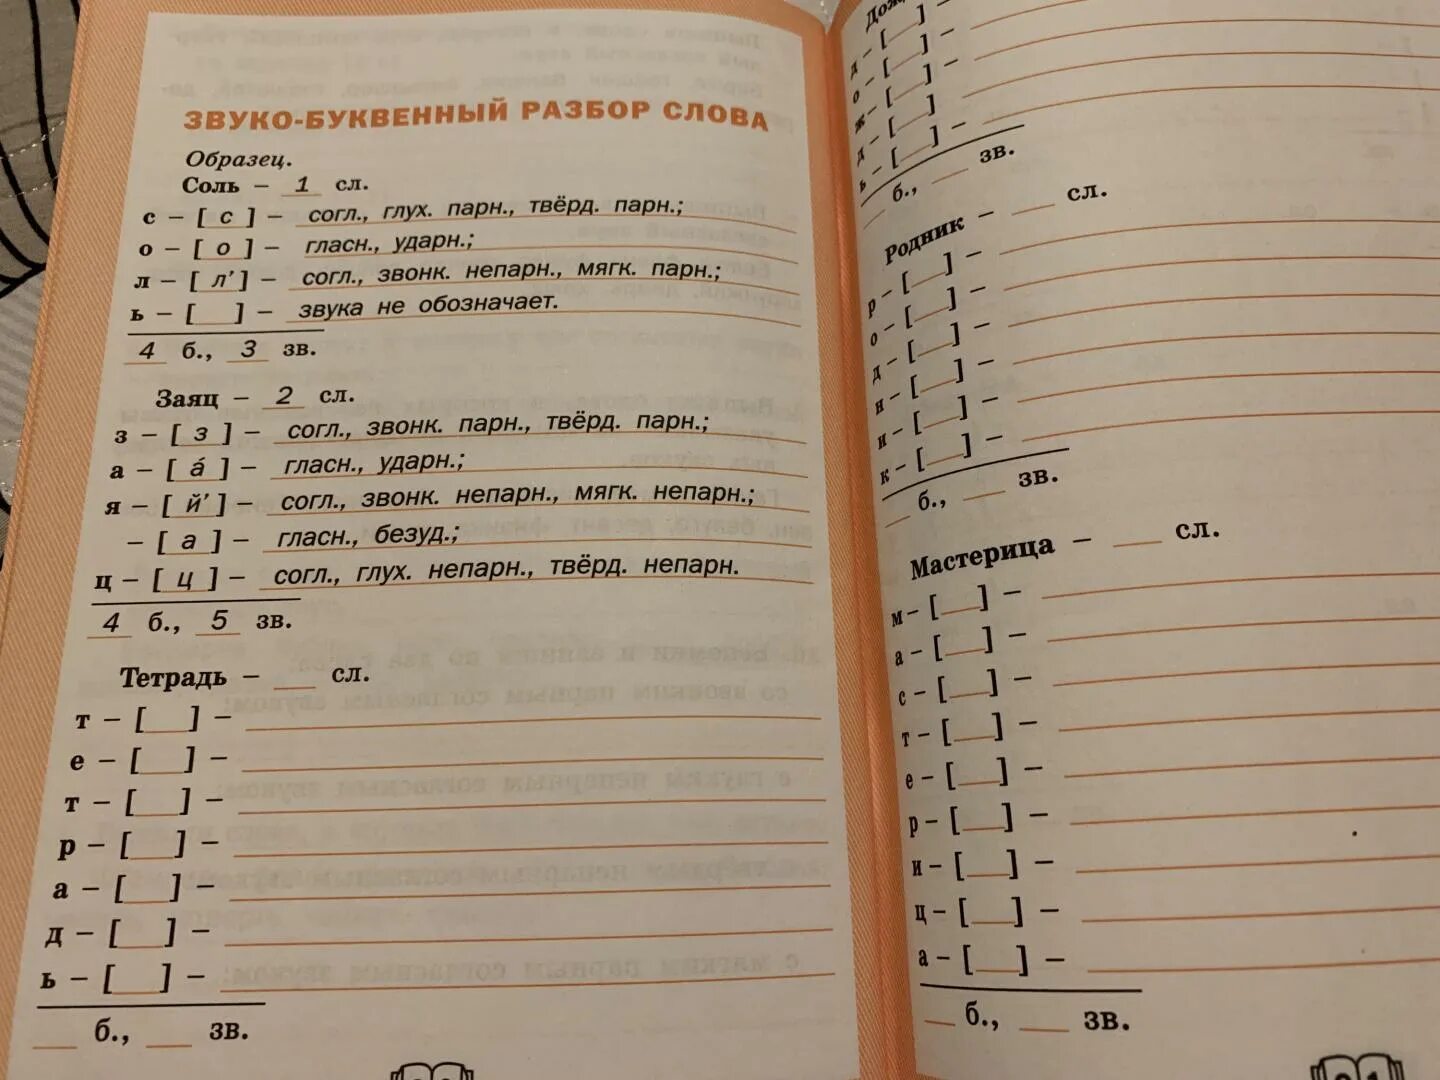 ЗВУКО-БУКВЕННЫЙ РАЗБОР СЛОВА
Образец.
Соль – 1 сл.
с – [ с ] – согл., глух. парн., твёрд. парн.;
о – [ о ] – гласн., ударн.;
л – [ л' ] – согл., звонк. непарн., мягк. парн.;
ь – [ ] – звука не обозначает.
4 б., 3 зв.
Заяц – 2 сл.
з – [ з ] – согл., звонк. парн., твёрд. парн.;
а – [ á ] – гласн., ударн.;
я – [ й' ] – согл., звонк. непарн., мягк. непарн.;
– [ а ] – гласн., безуд.;
ц – [ ц ] – согл., глух. непарн., твёрд. непарн.
4 б., 5 зв.
Тетрадь – __ сл.
т – [__] –
е – [__] –
т – [__] –
р – [__] –
а – [__] –
д – [__] –
ь – [__] –
__ б., __ зв.
д – [__] –
о – [__] –
ж – [__] –
д – [__] –
ь – [__] –
__ б., __ зв.
Родник – __ сл.
р – [__] –
о – [__] –
д – [__] –
н – [__] –
и – [__] –
к – [__] –
__ б., __ зв.
Мастерица – __ сл.
м – [__] –
а – [__] –
с – [__] –
т – [__] –
е – [__] –
р – [__] –
и – [__] –
ц – [__] –
а – [__] –
__ б., __ зв.